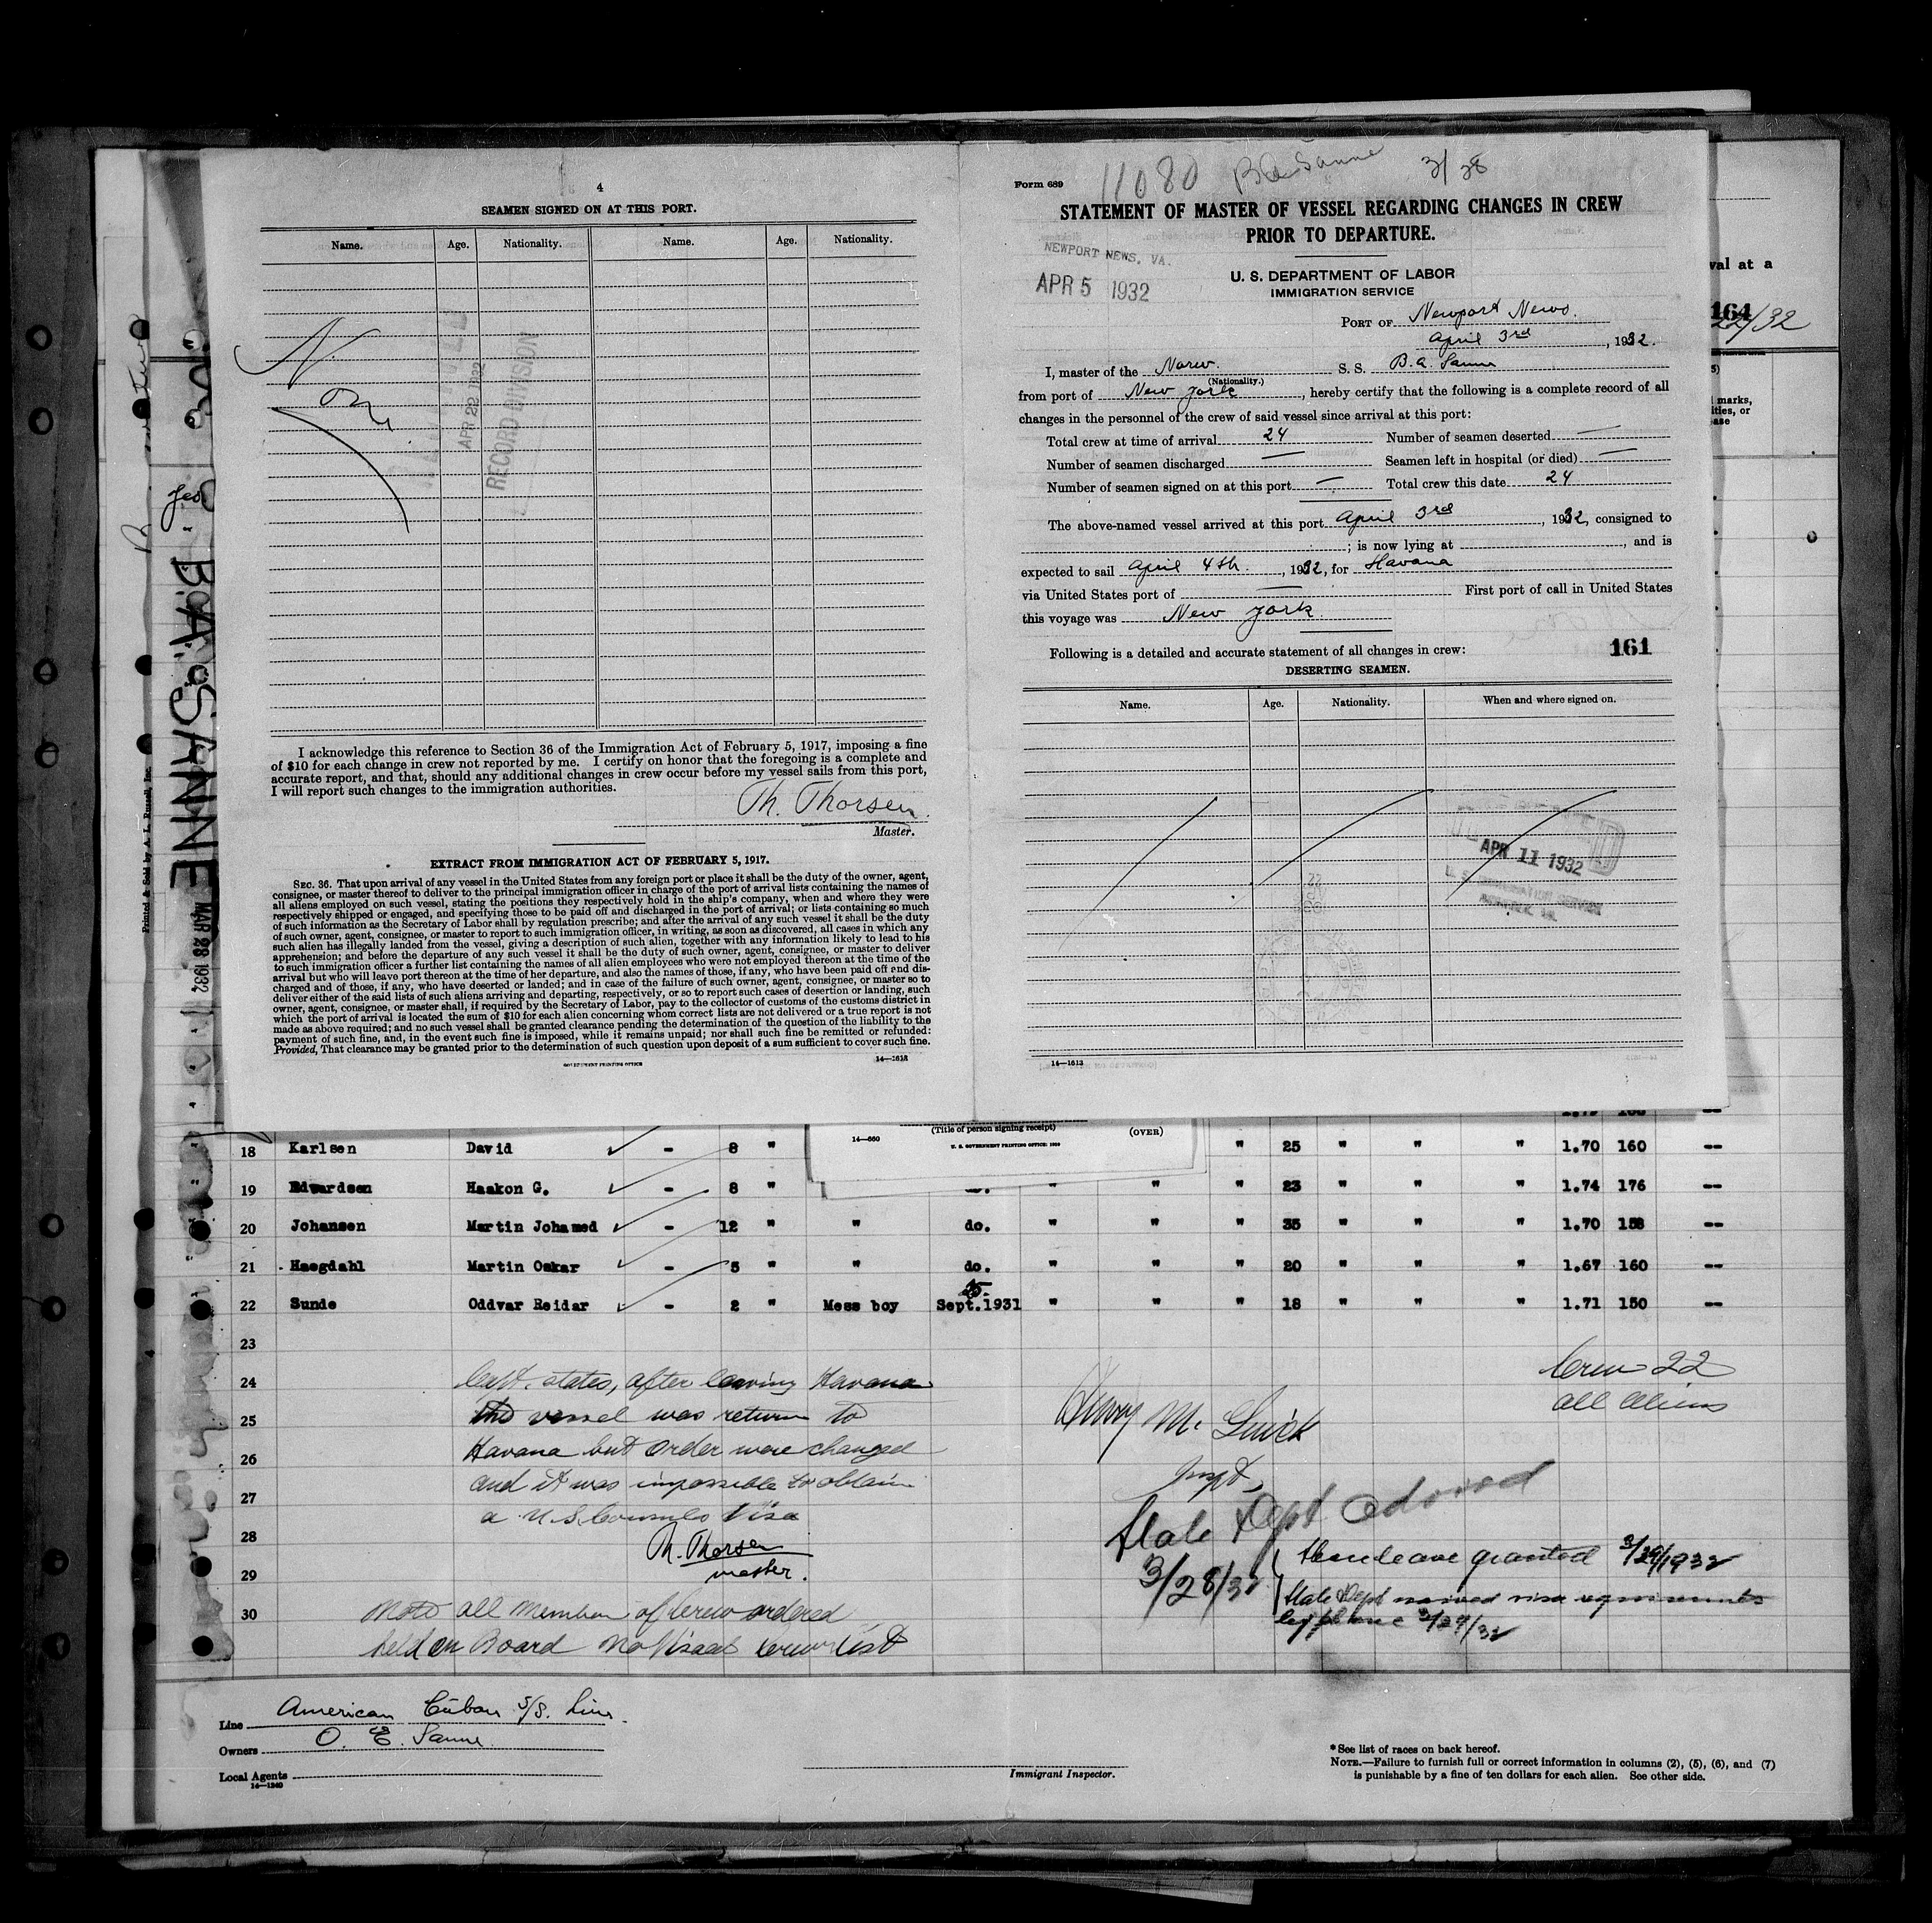 4
SEAMEN SIGNED ON AT THIS PORT.
Name. Age. Nationality. Name. Age. Nationality.
APR 22 1932
RECORD DIVISION
I acknowledge this reference to Section 36 of the Immigration Act of February 5, 1917, imposing a fine
of $10 for each change in crew not reported by me. I certify on honor that the foregoing is a complete and
accurate report, and that, should any additional changes in crew occur before my vessel sails from this port,
I will report such changes to the immigration authorities.
Th. Thorsen
Master.
EXTRACT FROM IMMIGRATION ACT OF FEBRUARY 5, 1917.
SEC. 36. That upon arrival of any vessel in the United States from any foreign port or place it shall be the duty of the owner, agent,
consignee, or master thereof to deliver to the principal immigration officer in charge of the port of arrival lists containing the names of
all aliens employed on such vessel, stating the positions they respectively hold in the ship's company, when and where they were
respectively shipped or engaged, and specifying those to be paid off and discharged in the port of arrival; or lists containing so much
of such information as the Secretary of Labor shall by regulation prescribe; and after the arrival of any such vessel it shall be the duty
of such owner, agent, consignee, or master to report to such immigration officer, in writing, as soon as discovered, all cases in which any
such alien has illegally landed from the vessel, giving a description of such alien, together with any information likely to lead to his
apprehension; and before the departure of any such vessel it shall be the duty of such owner, agent, consignee, or master to deliver
to such immigration officer a further list containing the names of all alien employees who were not employed thereon at the time of the
arrival but who will leave port thereon at the time of her departure, and also the names of those, if any, who have been paid off and dis-
charged and of those, if any, who have deserted or landed; and in case of the failure of such owner, agent, consignee, or master so to
deliver either of the said lists of such aliens arriving and departing, respectively, or so to report such cases of desertion or landing, such
owner, agent, consignee, or master shall, if required by the Secretary of Labor, pay to the collector of customs of the customs district in
which the port of arrival is located the sum of $10 for each alien concerning whom correct lists are not delivered or a true report is not
made as above required; and no such vessel shall be granted clearance pending the determination of the question of the liability to the
payment of such fine, and, in the event such fine is imposed, while it remains unpaid; nor shall such fine be remitted or refunded:
Provided, That clearance may be granted prior to the determination of such question upon deposit of a sum sufficient to cover such fine.
GOVERNMENT PRINTING OFFICE 14—1613
Form 689
11080 B.A. Sanne 3/28
STATEMENT OF MASTER OF VESSEL REGARDING CHANGES IN CREW
PRIOR TO DEPARTURE.
NEWPORT NEWS, VA.
APR 5 1932
U. S. DEPARTMENT OF LABOR
IMMIGRATION SERVICE
PORT OF Newport News.
April 3rd, 1932.
I, master of the Norw. S. S. B.A. Sanne
(Nationality.)
from port of New York, hereby certify that the following is a complete record of all
changes in the personnel of the crew of said vessel since arrival at this port:
Total crew at time of arrival 24 Number of seamen deserted —
Number of seamen discharged — Seamen left in hospital (or died) —
Number of seamen signed on at this port — Total crew this date 24
The above-named vessel arrived at this port April 3rd, 1932, consigned to
; is now lying at , and is
expected to sail April 4th., 1932, for Havana
via United States port of — First port of call in United States
this voyage was New York.
Following is a detailed and accurate statement of all changes in crew:
161
DESERTING SEAMEN.
Name. Age. Nationality. When and where signed on.
APR 11 1932
14—1613
val at a
164
22/32
marks,
ities, or
ease
B.A. SANNE
MAR 28 1932
Printed & Sold by A. L. Russell, Inc.
(Title of person signing receipt)
14—660 (OVER)
U. S. GOVERNMENT PRINTING OFFICE
18 Karlsen David - 8 " " 25 " " " 1.70 160 --
19 Edvardsen Haakon G. - 8 " " " " 23 " " " 1.74 176 --
20 Johansen Martin Johamed - 12 " " do. " " " 35 " " " 1.70 158 --
21 Haegdahl Martin Oskar - 5 " " do. " " " 20 " " " 1.67 160 --
22 Sunde Oddvar Reidar - 2 " Mess boy Sept.1931 " " " 18 " " " 1.71 150 --
23
24 Capt. states, after leaving Havana
25 the vessel was return to
26 Havana but order were changed
27 and it was impossible to obtain
a U.S. Consuls Visa
28 Th. Thorsen
29 master.
30 Note all member of Crew ordered
held on Board No Visaed crew list
Crew 22
all Aliens
Inspt.
State Dept advised
3/28/32
Shore leave granted 3/29/1932
State Dept waived visa requirements
by phone 3/29/32
Line American Cuban S/S. Line.
Owners O. E. Sanne
Local Agents
14—1240
Immigrant Inspector.
*See list of races on back hereof.
NOTE.—Failure to furnish full or correct information in columns (2), (5), (6), and (7)
is punishable by a fine of ten dollars for each alien. See other side.